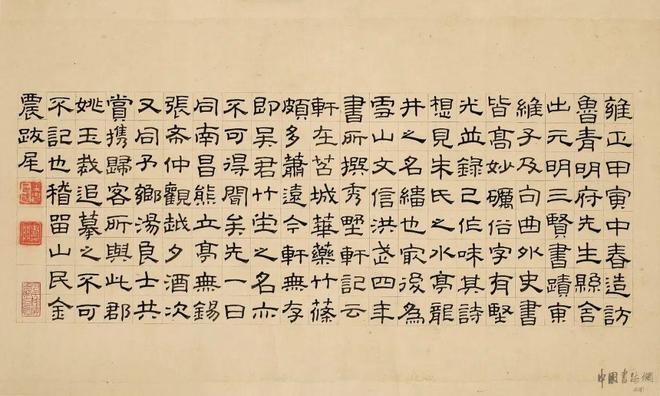 雍正甲寅中春造訪
魯青明府先生縣舍
出元明三賢書蹟東
維子及句曲外史書
皆高妙礪俗字有堅
光並錄己作味其詩
想見朱氏之水亭龍
井之名繙也家後為
雪山文信洪武四年
書所撰秀野軒記云
軒在苕城華藥竹蓧
頗多蕭遠今軒無存
即吳君竹堂之名亦
不可得聞矣先一日
同南昌熊立亭無錫
張斎仲觀越夕酒次
又同予鄉湯良士共
賞攜歸客所與此郡
姚玉裁追摹之不可
不記也稽留山民金
農跋尾
中國書法網